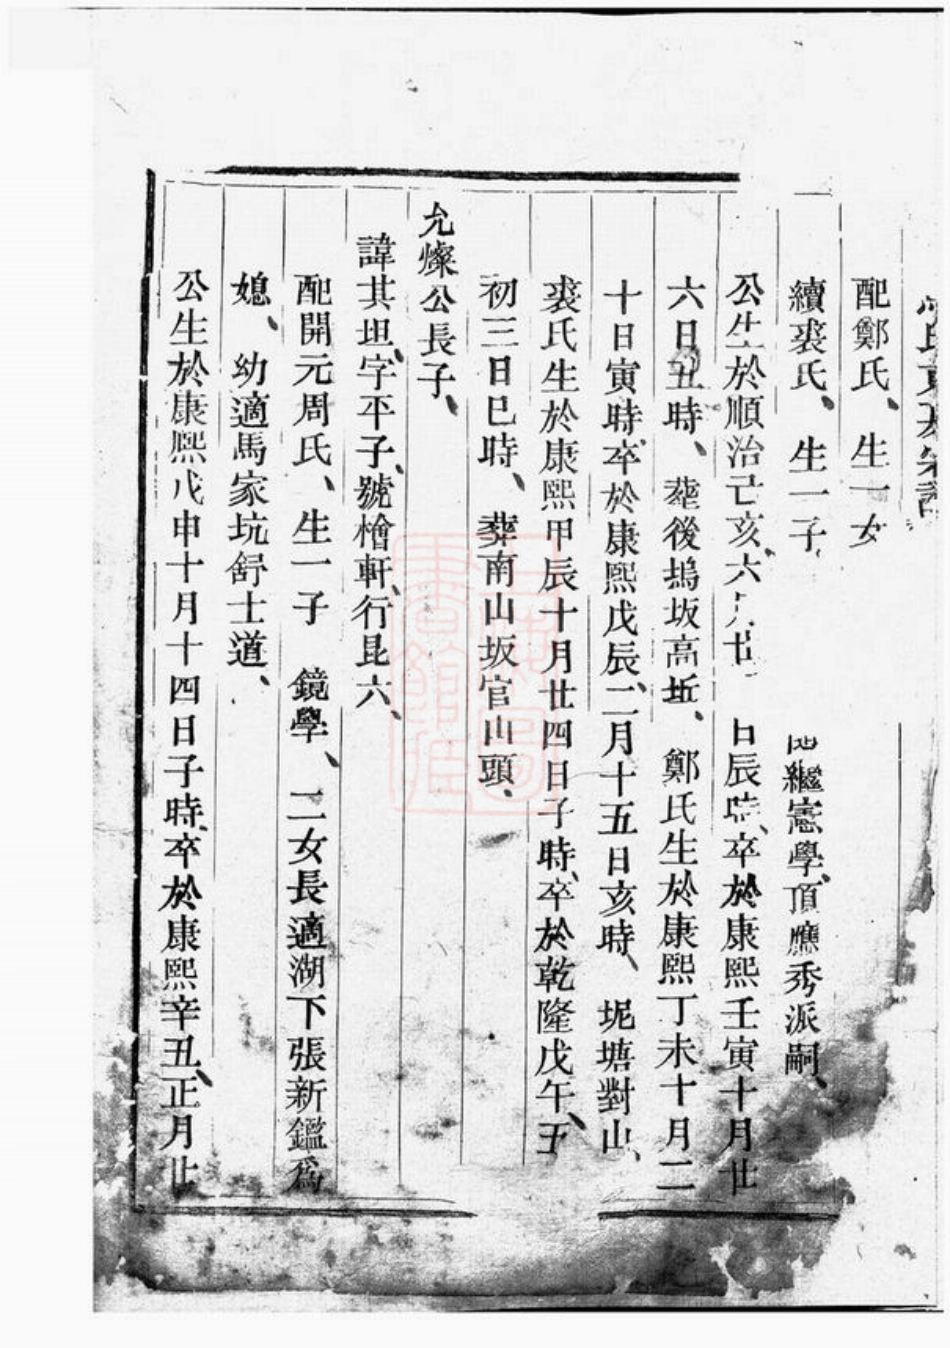 氏宗譜
配鄭氏、生一女
續裘氏、生一子 繼憲學、頂應秀派嗣、
公生於順治己亥、六月廿 日辰時、卒於康熙壬寅十月廿
六日丑時、葬後塢坂高坵、鄭氏生於康熙丁未十月二
十日寅時、卒於康熙戊辰、二月十五日亥時、坭塘對山、
裘氏生於康熙甲辰十月廿四日子時、卒於乾隆戊午、五
初三日巳時、葬南山坂官山頭、
允燦公長子、
諱其坦、字平子、號檜軒、行昆六、
配開元周氏、生一子 鏡學、二女長適湖下張新鑑爲
媳、幼適馬家坑舒士道、
公生於康熙戊申十月十四日子時、卒於康熙辛丑、正月廿